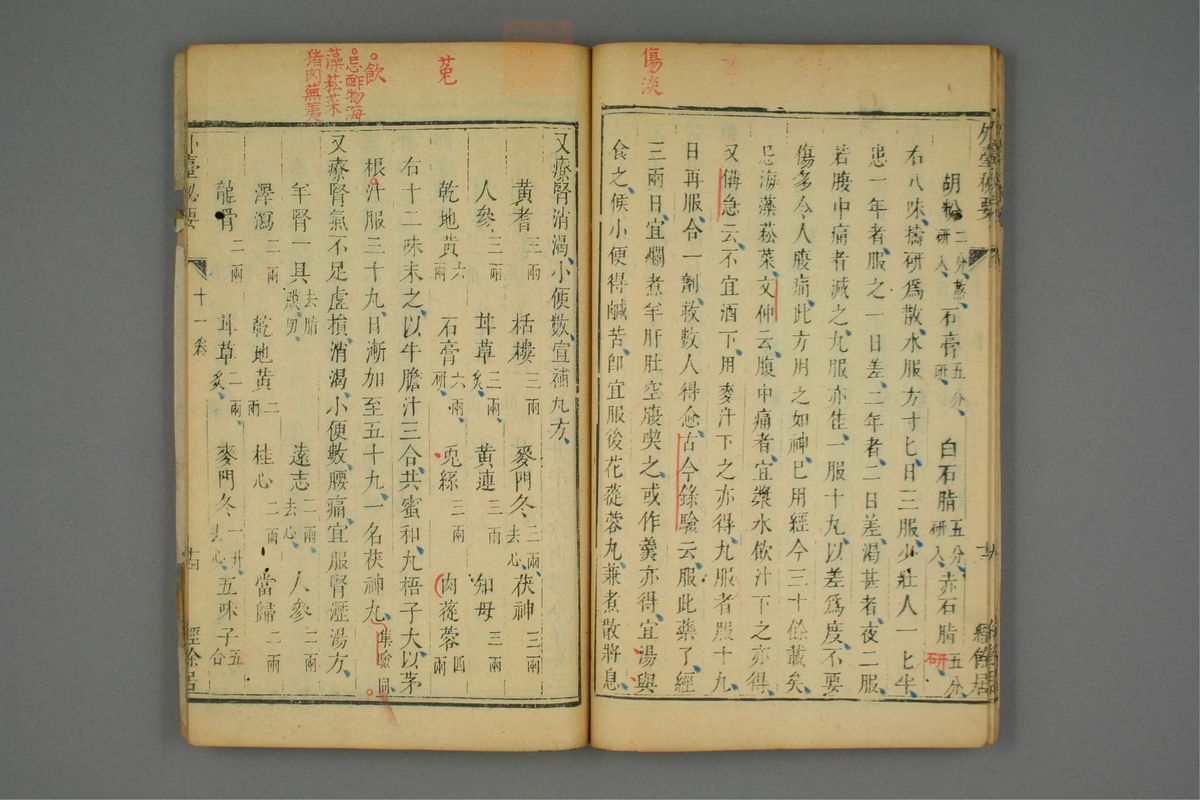 傷淡
外臺秘要
胡粉二分熬研入 石膏五分研 白石脂五分研入 赤石脂五分研
右八味擣研為散水服方寸匕日三服少壯人一匕半
患一年者服之一日差二年者二日差渴甚者夜二服
若腹中痛者減之丸服亦佳一服十丸以差為度不要
傷多令人腹痛此方用之如神已用經今三十餘載矣
忌海藻菘菜文仲云腹中痛者宜漿水飲汁下之亦得
又備急云不宜酒下用麥汁下之亦得丸服者服十丸
日再服合一劑救數人得愈古今錄驗云服此藥了經
三兩日宜爛煮羊肝肚空腹喫之或作羹亦得宜湯與
食之候小便得鹹苦即宜服後花蓯蓉丸兼煮散將息
菟
飲
忌酢物海
藻菘菜
猪肉蕪荑
又療腎消渴小便數宜補丸方
黃耆三兩 栝樓三兩 麥門冬二兩去心 茯神三兩
人參三兩 甘草三兩炙 黃連三兩 知母三兩
乾地黃六兩 石膏六兩研 兎絲三兩 肉蓯蓉四兩
右十二味末之以牛膽汁三合共蜜和丸梧子大以茅
根汁服三十丸日漸加至五十丸一名茯神丸集驗同
又療腎氣不足虛損消渴小便數腰痛宜服腎瀝湯方
羊腎一具去脂膜切 遠志二兩去心 人參二兩
澤瀉二兩 乾地黃二兩 桂心二兩 當歸二兩
龍骨二兩 甘草二兩炙 麥門冬一升去心 五味子五合
外臺秘要 十一卷 經餘居